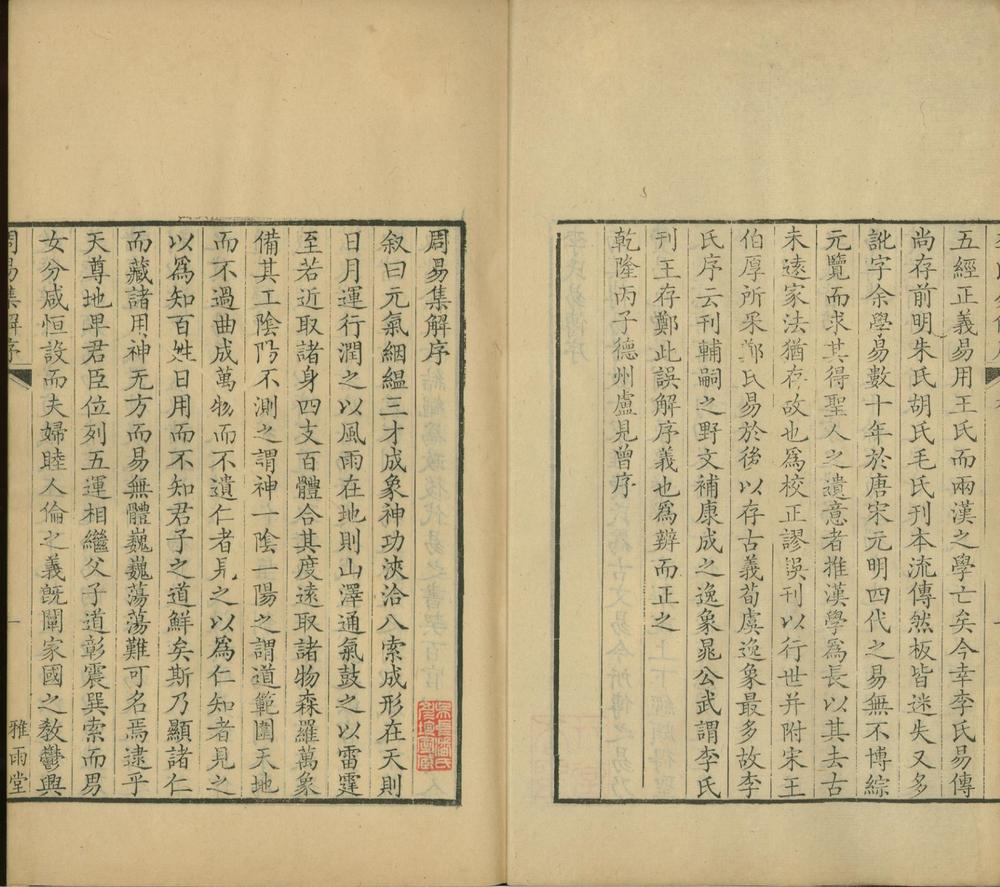 五經正義易用王氏而兩漢之學亡矣今幸李氏易傳
尚存前明朱氏胡氏毛氏刊本流傳然板皆迷失又多
訛字余學易數十年於唐宋元明四代之易無不博綜
元覽而求其得聖人之遺意者推漢學為長以其去古
未遠家法猶存故也為校正謬誤刊以行世并附宋王
伯厚所采鄭氏易於後以存古義荀虞逸象最多故李
氏序云刊輔嗣之野文補康成之逸象晁公武謂李氏
刊王存鄭此誤解序義也為辨而正之
乾隆丙子德州盧見曾序
周易集解序
叙曰元氣絪縕三才成象神功浹洽八索成形在天則
日月運行潤之以風雨在地則山澤通氣鼓之以雷霆
至若近取諸身四支百體合其度遠取諸物森羅萬象
備其工陰陽不測之謂神一陰一陽之謂道範圍天地
而不過曲成萬物而不遺仁者見之以為仁知者見之
以為知百姓日用而不知君子之道鮮矣斯乃顯諸仁
而藏諸用神无方而易無體巍巍蕩蕩難可名焉逮乎
天尊地卑君臣位列五運相繼父子道彰震巽索而男
女分咸恒設而夫婦睦人倫之義既闡家國之教鬱興
周易集解序 一 雅雨堂